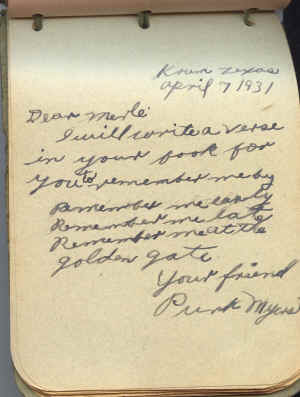 Krum Texas
April 7 1931
Dear Merle
I will write a verse
in your book for
you to remember me by
Remember me early
Remember me late
Remember me at the
golden gate
Your friend
Purk Myers